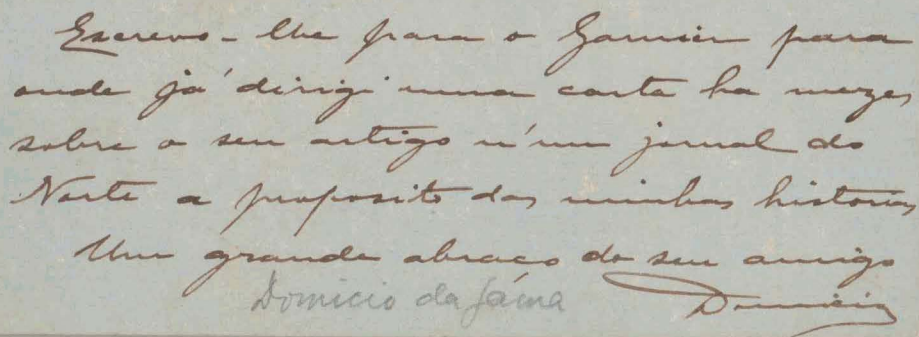 Escrevo-lhe para o Garnier para
onde já dirigi uma carta ha mezes
sobre o seu artigo n'um jornal do
Norte a proposito das minhas historias
Um grande abraço do seu amigo
Domicio
Domicio da Gama